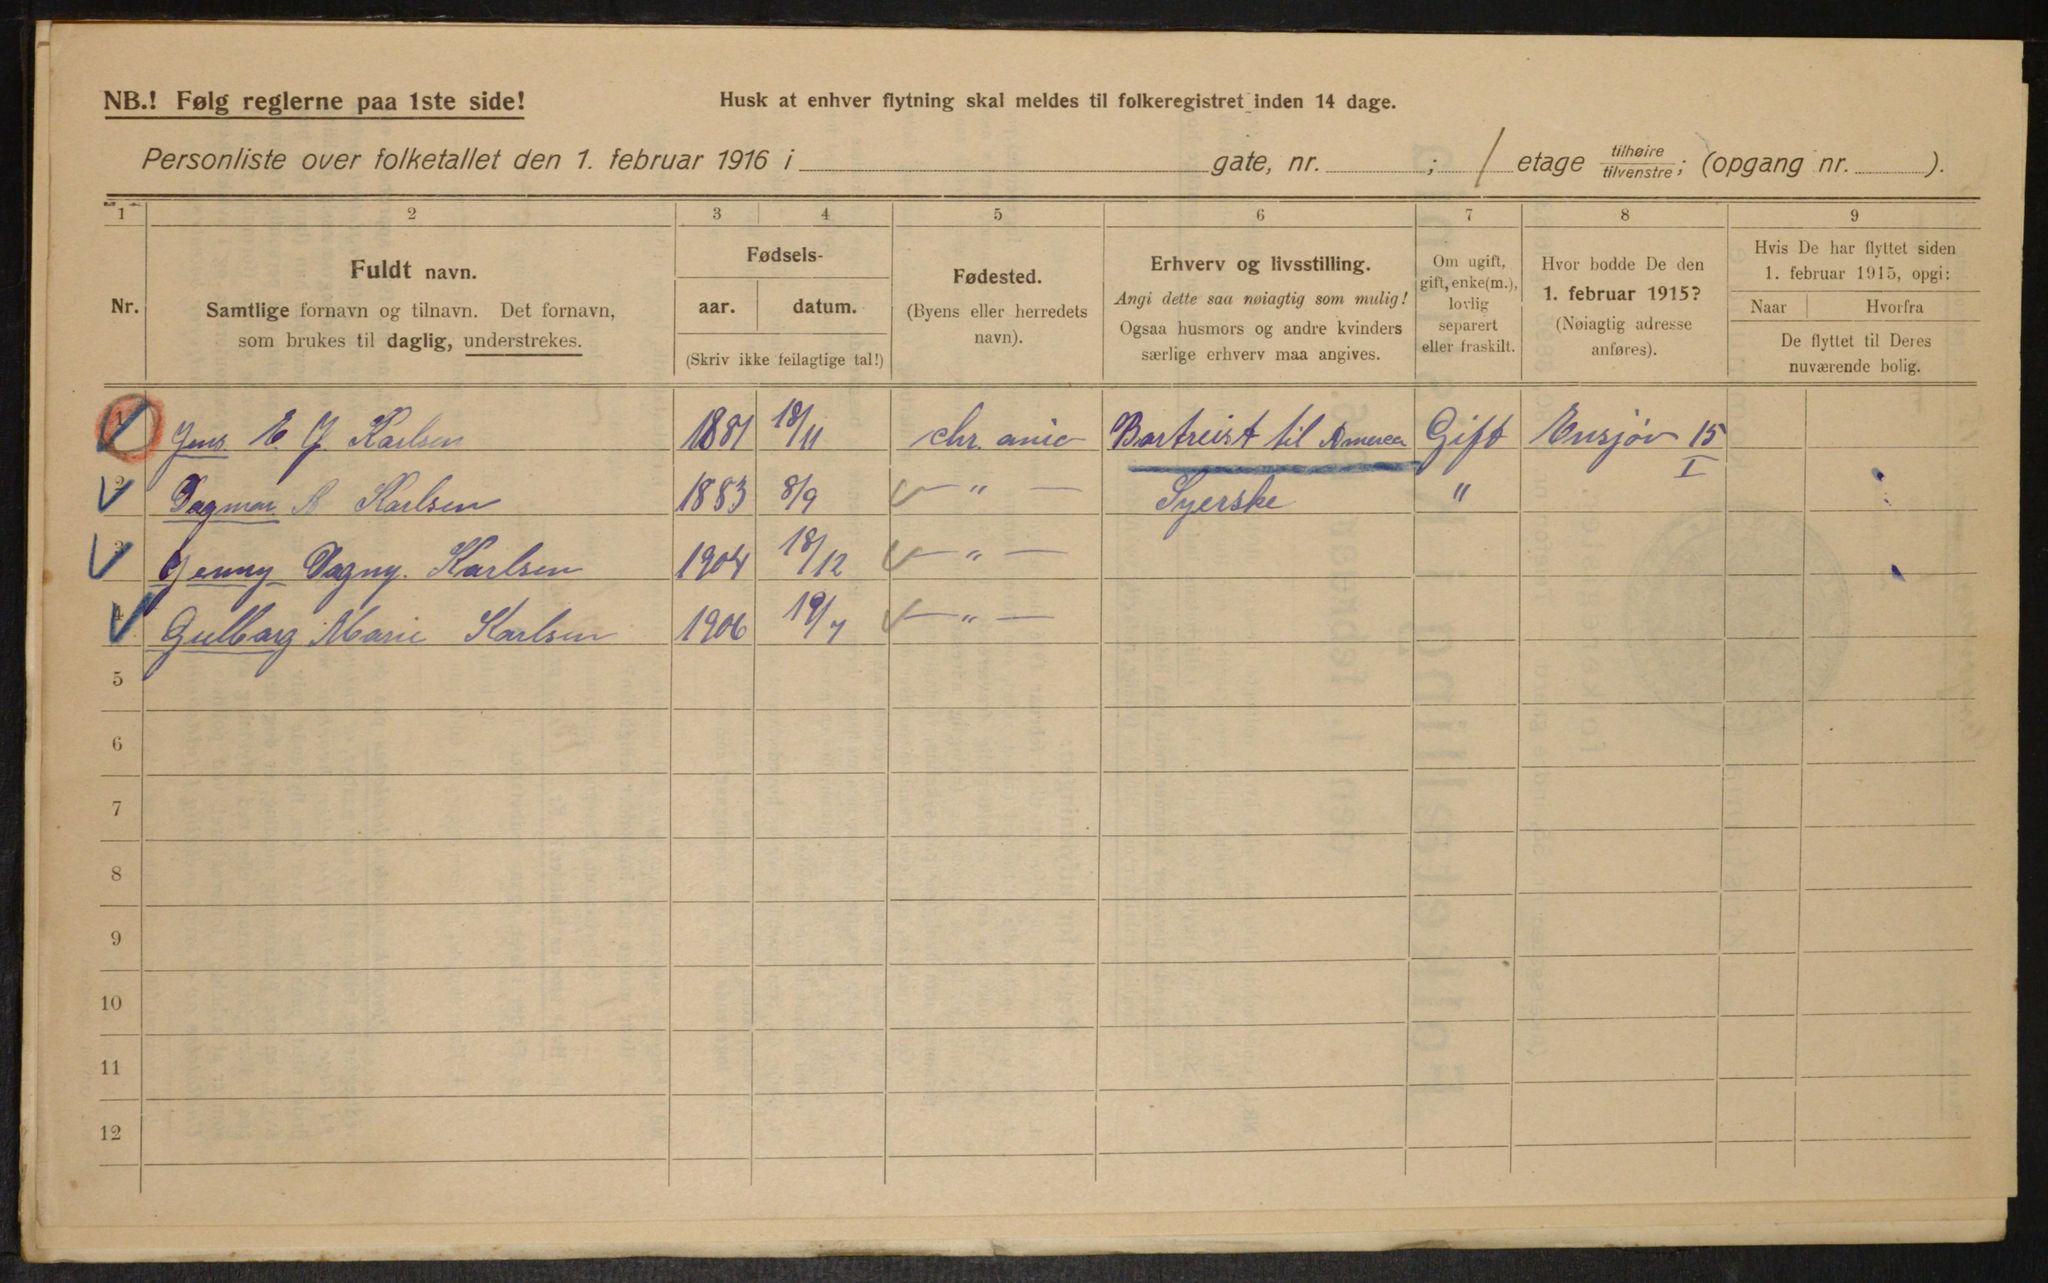 NB.! Følg reglerne paa 1ste side!
Husk at enhver flytning skal meldes til folkeregistret inden 14 dage.
Personliste over folketallet den 1. februar 1916 i gate, nr. ; / etage tilhøire/tilvenstre; (opgang nr. ).
1 2 3 4 5 6 7 8 9
Nr.
Fuldt navn.
Samtlige fornavn og tilnavn. Det fornavn,
som brukes til daglig, understrekes.
Fødsels-
aar. datum.
(Skriv ikke feilagtige tal!)
Fødested.
(Byens eller herredets
navn).
Erhverv og livsstilling.
Angi dette saa nøiagtig som mulig!
Ogsaa husmors og andre kvinders
særlige erhverv maa angives.
Om ugift,
gift, enke(m.),
lovlig
separert
eller fraskilt.
Hvor bodde De den
1. februar 1915?
(Nøiagtig adresse
anføres).
Hvis De har flyttet siden
1. februar 1915, opgi:
Naar Hvorfra
De flyttet til Deres
nuværende bolig.
1 Jens E. J. Karlsen 1881 18/11 Chr. ania Bortreist til Amerca Gift Ensjøv 15 I
2 Dagmar A Karlsen 1883 8/9 — " — Syerske "
3 Jenny Dagny. Karlsen 1904 18/12 — " —
4 Gulborg Marie Karlsen 1906 19/7 — " —
5
6
7
8
9
10
11
12